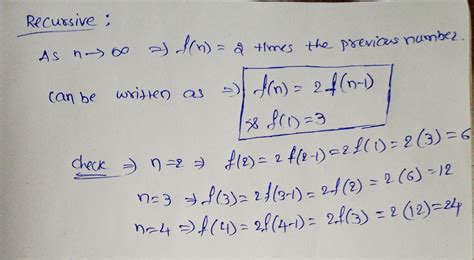 Recursive :
As n→∞ ⇒ f(n) = 2 times the previous number.
Can be written as ⇒ f(n) = 2f(n-1)
& f(1) = 3
Check ⇒ n=2 ⇒ f(2) = 2f(2-1) = 2f(1) = 2(3) = 6
n=3 ⇒ f(3) = 2f(3-1) = 2f(2) = 2(6) = 12
n=4 ⇒ f(4) = 2f(4-1) = 2f(3) = 2(12) = 24